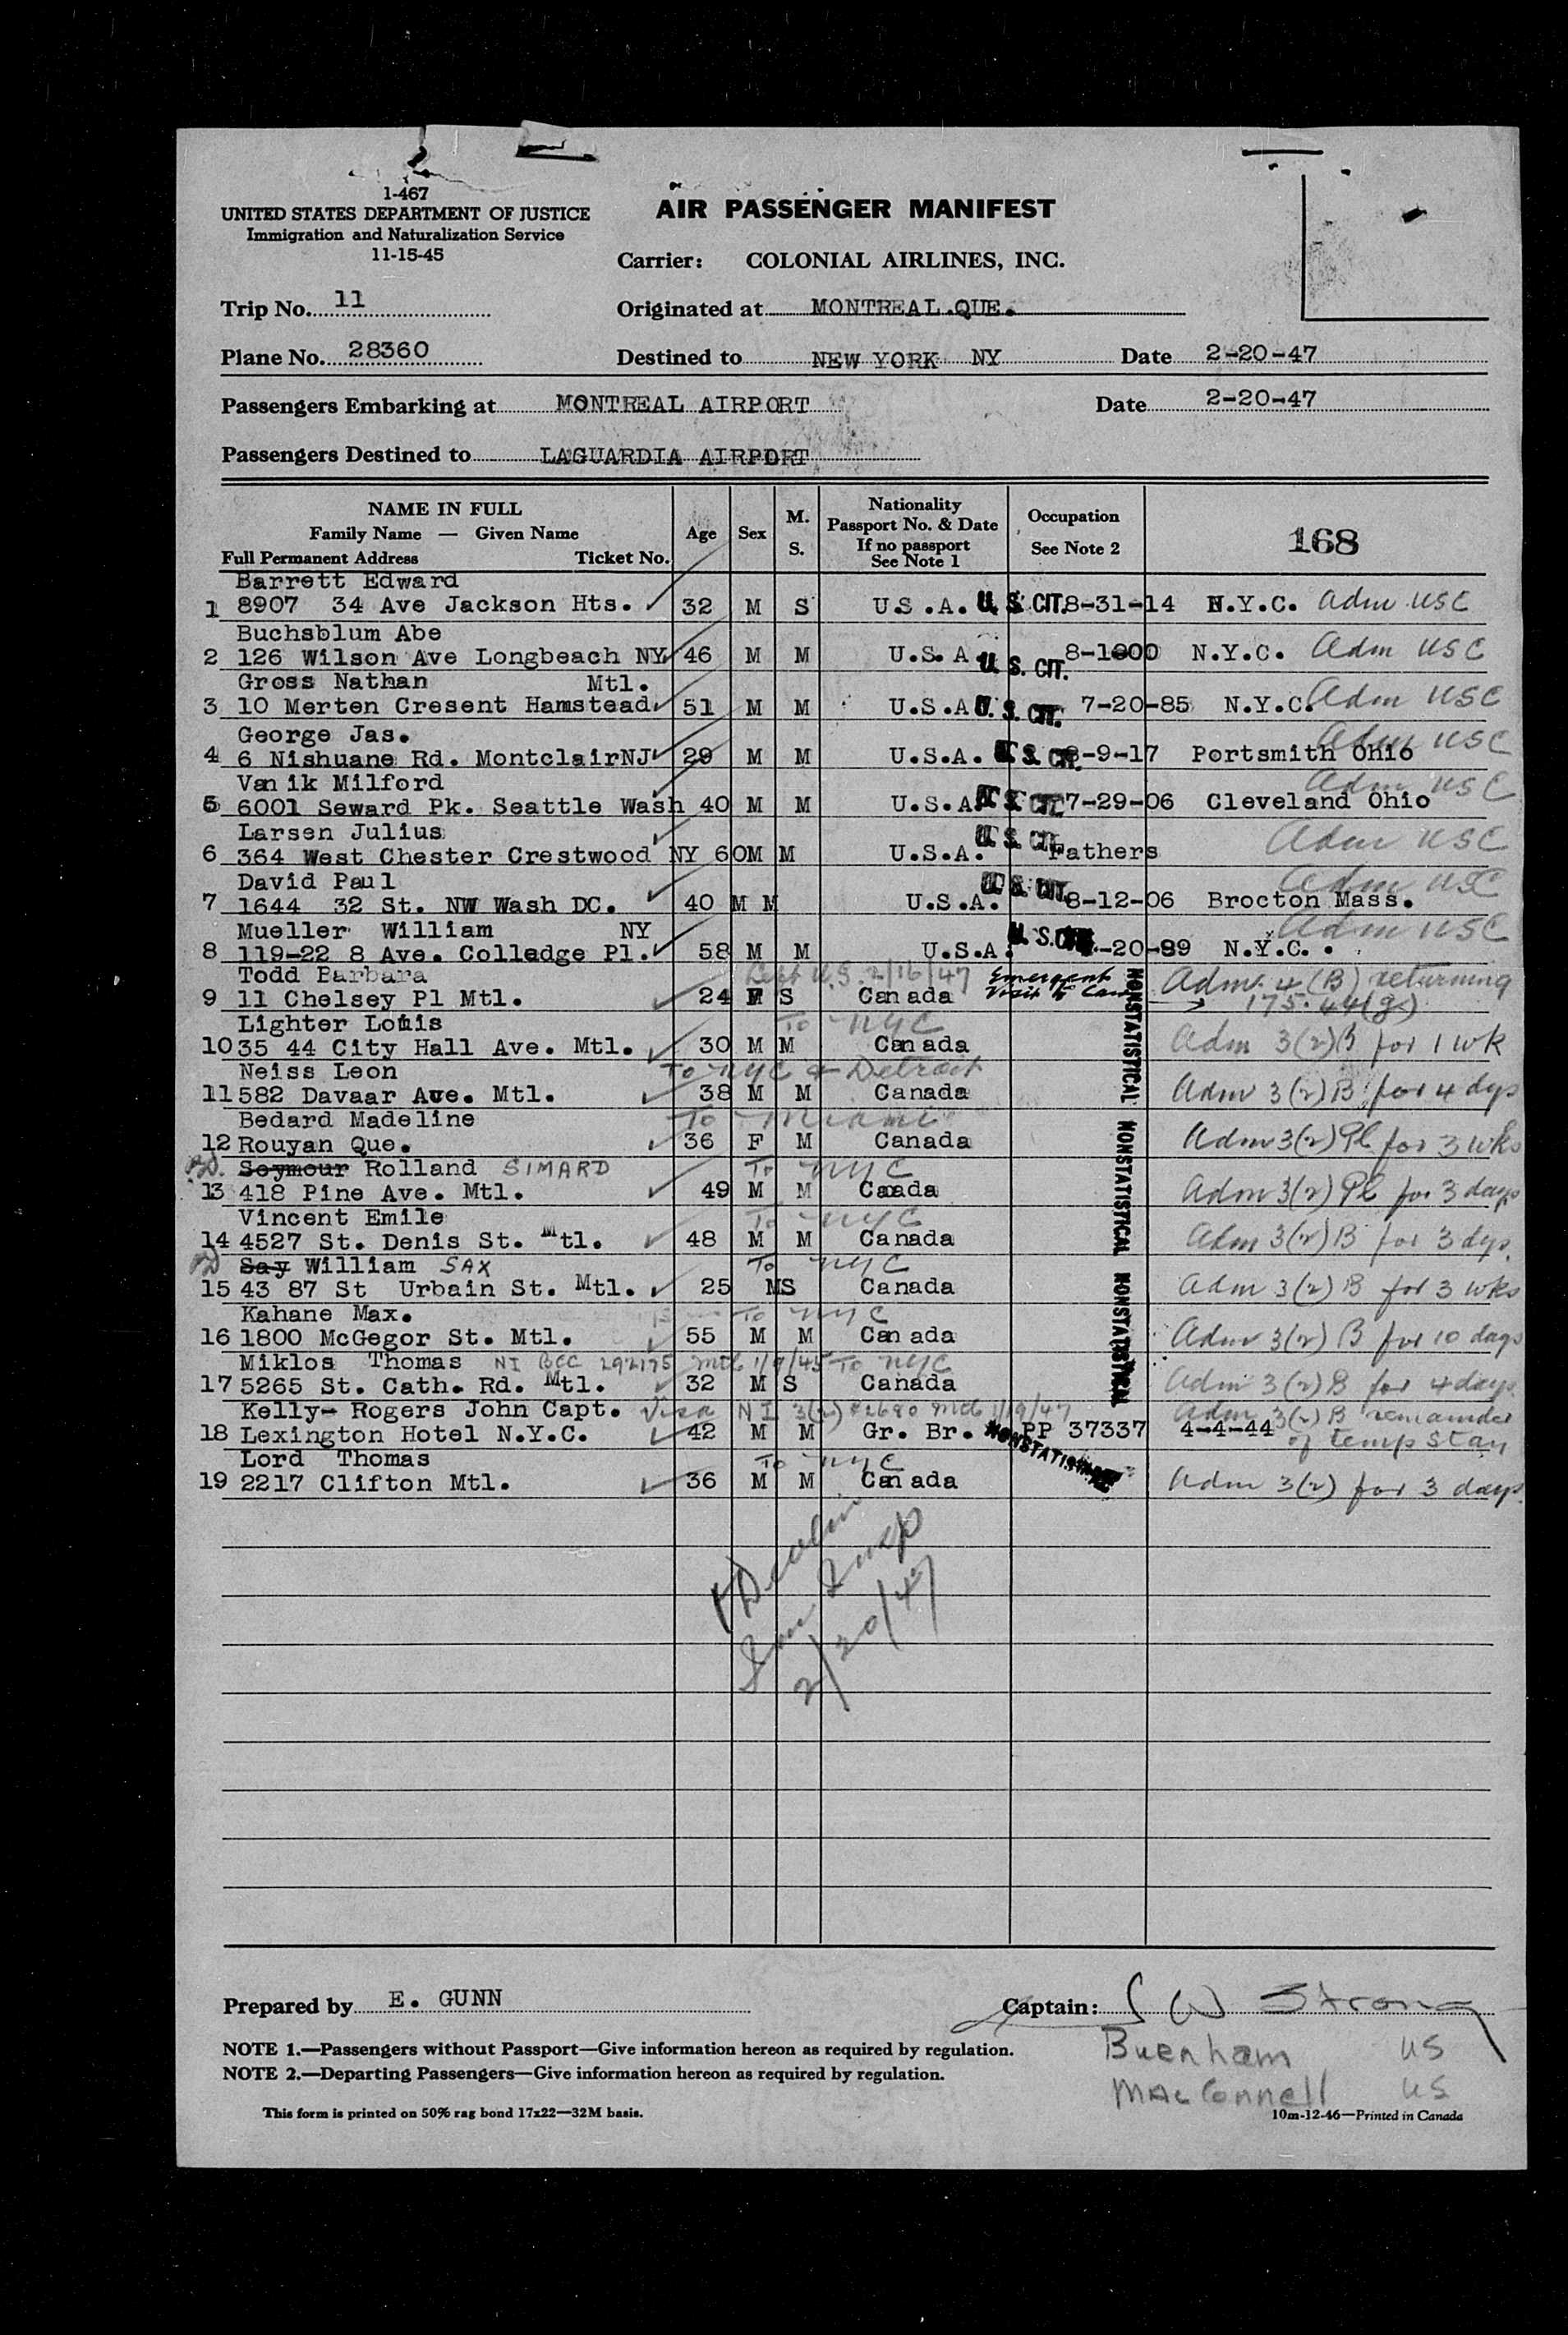 1-467
UNITED STATES DEPARTMENT OF JUSTICE
Immigration and Naturalization Service
11-15-45
AIR PASSENGER MANIFEST
Carrier: COLONIAL AIRLINES, INC.
Trip No. 11
Originated at MONTREAL.QUE.
Plane No. 28360
Destined to NEW YORK NY Date 2-20-47
Passengers Embarking at MONTREAL AIRPORT Date 2-20-47
Passengers Destined to LAGUARDIA AIRPORT
NAME IN FULL
Family Name — Given Name
Full Permanent Address Ticket No.
Age
Sex
M.
S.
Nationality
Passport No. & Date
If no passport
See Note 1
Occupation
See Note 2
168
Barrett Edward
1 8907 34 Ave Jackson Hts. 32 M S U.S.A. U.S. CIT. 8-31-14 N.Y.C. Adm USC
Buchsblum Abe
2 126 Wilson Ave Longbeach NY 46 M M U.S.A U.S. CIT. 8-1000 N.Y.C. Adm USC
Gross Nathan Mtl.
3 10 Merten Cresent Hamstead. 51 M M U.S.A U.S. CIT. 7-20-85 N.Y.C. Adm USC
George Jas.
4 6 Nishuane Rd. MontclairNJ 29 M M U.S.A. U.S. CIT. 8-9-17 Portsmith Ohio Adm USC
Vanik Milford
5 6001 Seward Pk. Seattle Wash 40 M M U.S.A. U.S. CIT. 7-29-06 Cleveland Ohio Adm USC
Larsen Julius
6 364 West Chester Crestwood NY 60M M U.S.A. U.S. CIT. Fathers Adm USC
David Paul
7 1644 32 St. NW Wash DC. 40 M M U.S.A. U.S. CIT. 8-12-06 Brocton Mass. Adm USC
Mueller William NY
8 119-22 8 Ave. Colledge Pl. 58 M M U.S.A. U.S. CIT. -20-89 N.Y.C. Adm USC
Todd Barbara Left U.S. 2/16/47 Emergent
9 11 Chelsey Pl Mtl. 24 F S Canada Visit to Can Adm. 4(B) returning
175.44(g)
Lighter Louis To NYC
10 35 44 City Hall Ave. Mtl. 30 M M Canada Adm 3(2)B for 1 wk
Neiss Leon To NYC & Detroit
11 582 Davaar Ave. Mtl. 38 M M Canada Adm 3(2)B for 4 dys
Bedard Madeline To Miami
12 Rouyan Que. 36 F M Canada Adm 3(2) Pl for 3 wks
Seymour Rolland SIMARD To NYC
13 418 Pine Ave. Mtl. 49 M M Canada Adm 3(2) Pl for 3 days
Vincent Emile To NYC
14 4527 St. Denis St. Mtl. 48 M M Canada Adm 3(2)B for 3 dys.
Say William SAX To NYC
15 43 87 St Urbain St. Mtl. 25 MS Canada Adm 3(2) B for 3 wks
Kahane Max. To NYC
16 1800 McGegor St. Mtl. 55 M M Canada Adm 3(2) B for 10 days
Miklos Thomas NI BCC 292175 Mtl 1/9/45 To NYC
17 5265 St. Cath. Rd. Mtl. 32 M S Canada Adm 3(2)B for 4 days
Kelly- Rogers John Capt. Visa NI 3(2) #2680 Mtl 1/19/47 Adm 3(2) B remainder
18 Lexington Hotel N.Y.C. 42 M M Gr. Br. PP 37337 4-4-44 of temp stay
Lord Thomas To NYC
19 2217 Clifton Mtl. 36 M M Canada Adm 3(2) for 3 days.
NONSTATISTICAL
NONSTATISTICAL
NONSTATISTICAL
NONSTATISTICAL
Imm Insp
2/20/47
Prepared by E. GUNN
Captain: W Strong
NOTE 1.—Passengers without Passport—Give information hereon as required by regulation.
Burnham US
NOTE 2.—Departing Passengers—Give information hereon as required by regulation.
MacConnell US
This form is printed on 50% rag bond 17x22—32M basis.
10m-12-46—Printed in Canada